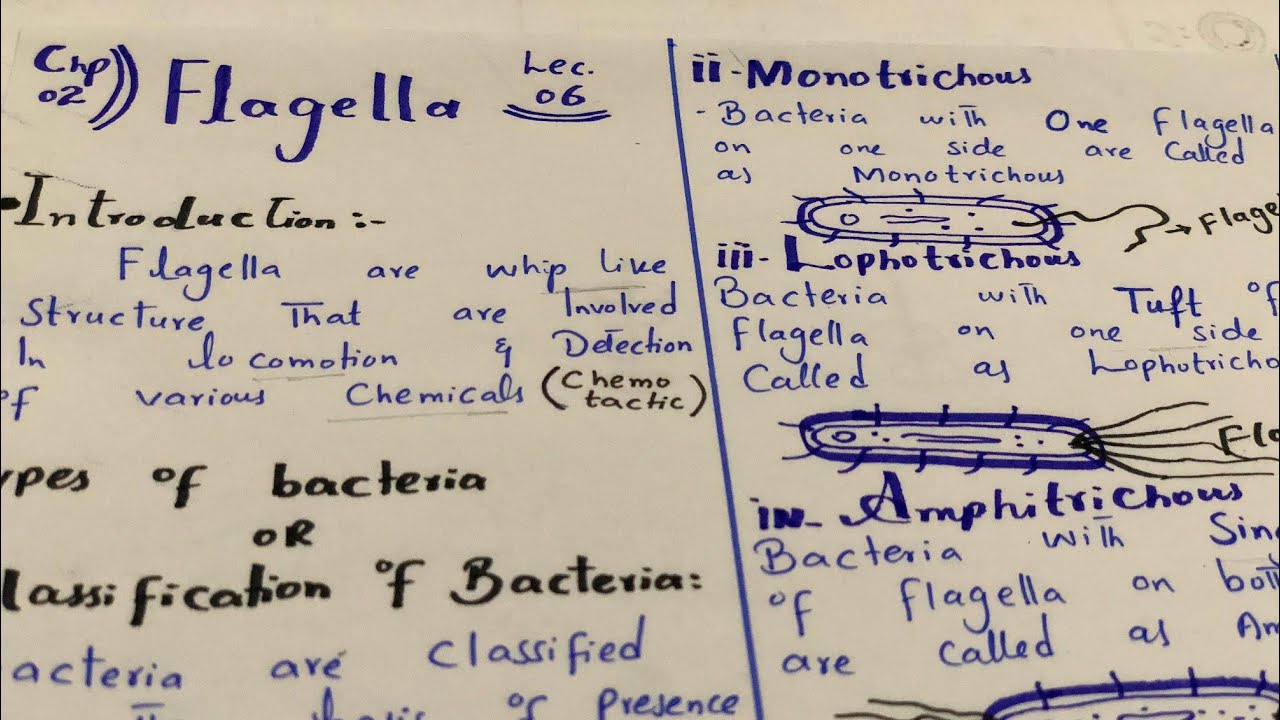 Chp 02)) Flagella Lec. 06
Introduction:-
Flagella are whip like
Structure That are Involved
In locomotion & Detection
of various Chemicals (Chemo
tactic)
ypes of bacteria
OR
lassification of Bacteria:
acteria are classified
of Presence
ii - Monotrichous
- Bacteria with One Flagella
on one side are Called
as Monotrichous
→ Flage
iii- Lophotrichous
Bacteria with Tuft of
Flagella on one side
Called as Lophotricho
Fla
iv- Amphitrichous
Bacteria with Sin
of flagella on bot
are called as Am